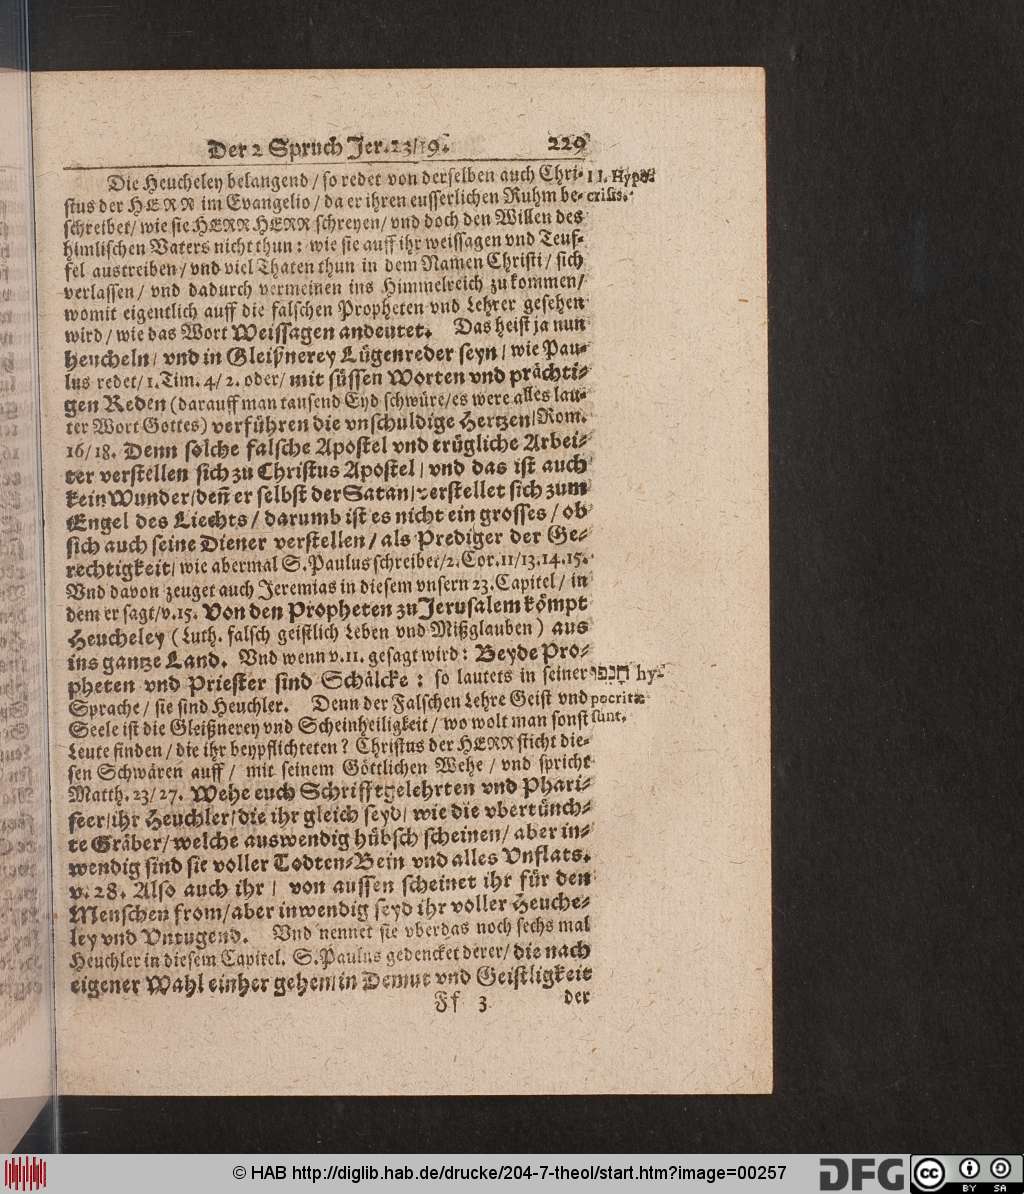 Der 2 Spruch Jer. 23/19. 229
Die Heucheley belangend / so redet von derselben auch Chri-
II. Hypo-
crisis.
stus der HERR im Evangelio / da er ihren eusserlichen Ruhm be-
schreibet / wie sie HERR HERR schreyen / vnd doch den Willen des
himlischen Vaters nicht thun: wie sie auff ihr weissagen vnd Teuf-
fel austreiben / vnd viel Thaten thun in dem Namen Christi / sich
verlassen / vnd dadurch vermeinen ins Himmelreich zu kommen /
womit eigentlich auff die falschen Propheten vnd Lehrer gesehen
wird / wie das Wort Weissagen andeutet. Das heist ja nun
heucheln / vnd in Gleißnerey Lügenreder seyn / wie Pau-
lus redet / 1. Tim. 4/2. oder / mit süssen Worten vnd prächti-
gen Reden (darauff man tausend Eyd schwüre / es were alles lau-
ter Wort Gottes) verführen die vnschuldige Hertzen / Rom.
16/18. Denn solche falsche Apostel vnd trügliche Arbei-
ter verstellen sich zu Christus Apostel / vnd das ist auch
kein Wunder / deñ er selbst der Satan / verstellet sich zum
Engel des Liechts / darumb ist es nicht ein grosses / ob
sich auch seine Diener verstellen / als Prediger der Ge-
rechtigkeit / wie abermal S. Paulus schreibet / 2. Cor. 11/13.14.15.
Vnd davon zeuget auch Jeremias in diesem vnsern 23. Capitel / in
dem er sagt / v.15. Von den Propheten zu Jerusalem kömpt
Heucheley (Luth. falsch geistlich Leben vnd Mißglauben) aus
ins gantze Land. Vnd wenn v.11. gesagt wird: Beyde Pro-
pheten vnd Priester sind Schälcke: so lautets in seiner
חָנֵפוּ hy-
pocritæ
sunt.
Sprache / sie sind Heuchler. Denn der Falschen Lehre Geist vnd
Seele ist die Gleißnerey vnd Scheinheiligkeit / wo wolt man sonst
Leute finden / die ihr beypflichteten? Christus der HERR sticht die-
sen Schwären auff / mit seinem Göttlichen Wehe / vnd spricht
Matth. 23/27. Wehe euch Schrifftgelehrten vnd Phari-
seer / ihr Heuchler / die ihr gleich seyd / wie die vbertünch-
te Gräber / welche auswendig hübsch scheinen / aber in-
wendig sind sie voller Todten-Bein vnd alles Vnflats.
v. 28. Also auch ihr / von aussen scheinet ihr für den
Menschen from / aber inwendig seyd ihr voller Heuche-
ley vnd Vntugend. Vnd nennet sie vberdas noch sechs mal
Heuchler in diesem Capitel. S. Paulus gedencket derer / die nach
eigener Wahl einher gehen / in Demut vnd Geistligkeit
Ff 3 der
© HAB http://diglib.hab.de/drucke/204-7-theol/start.htm?image=00257
DFG
cc BY SA